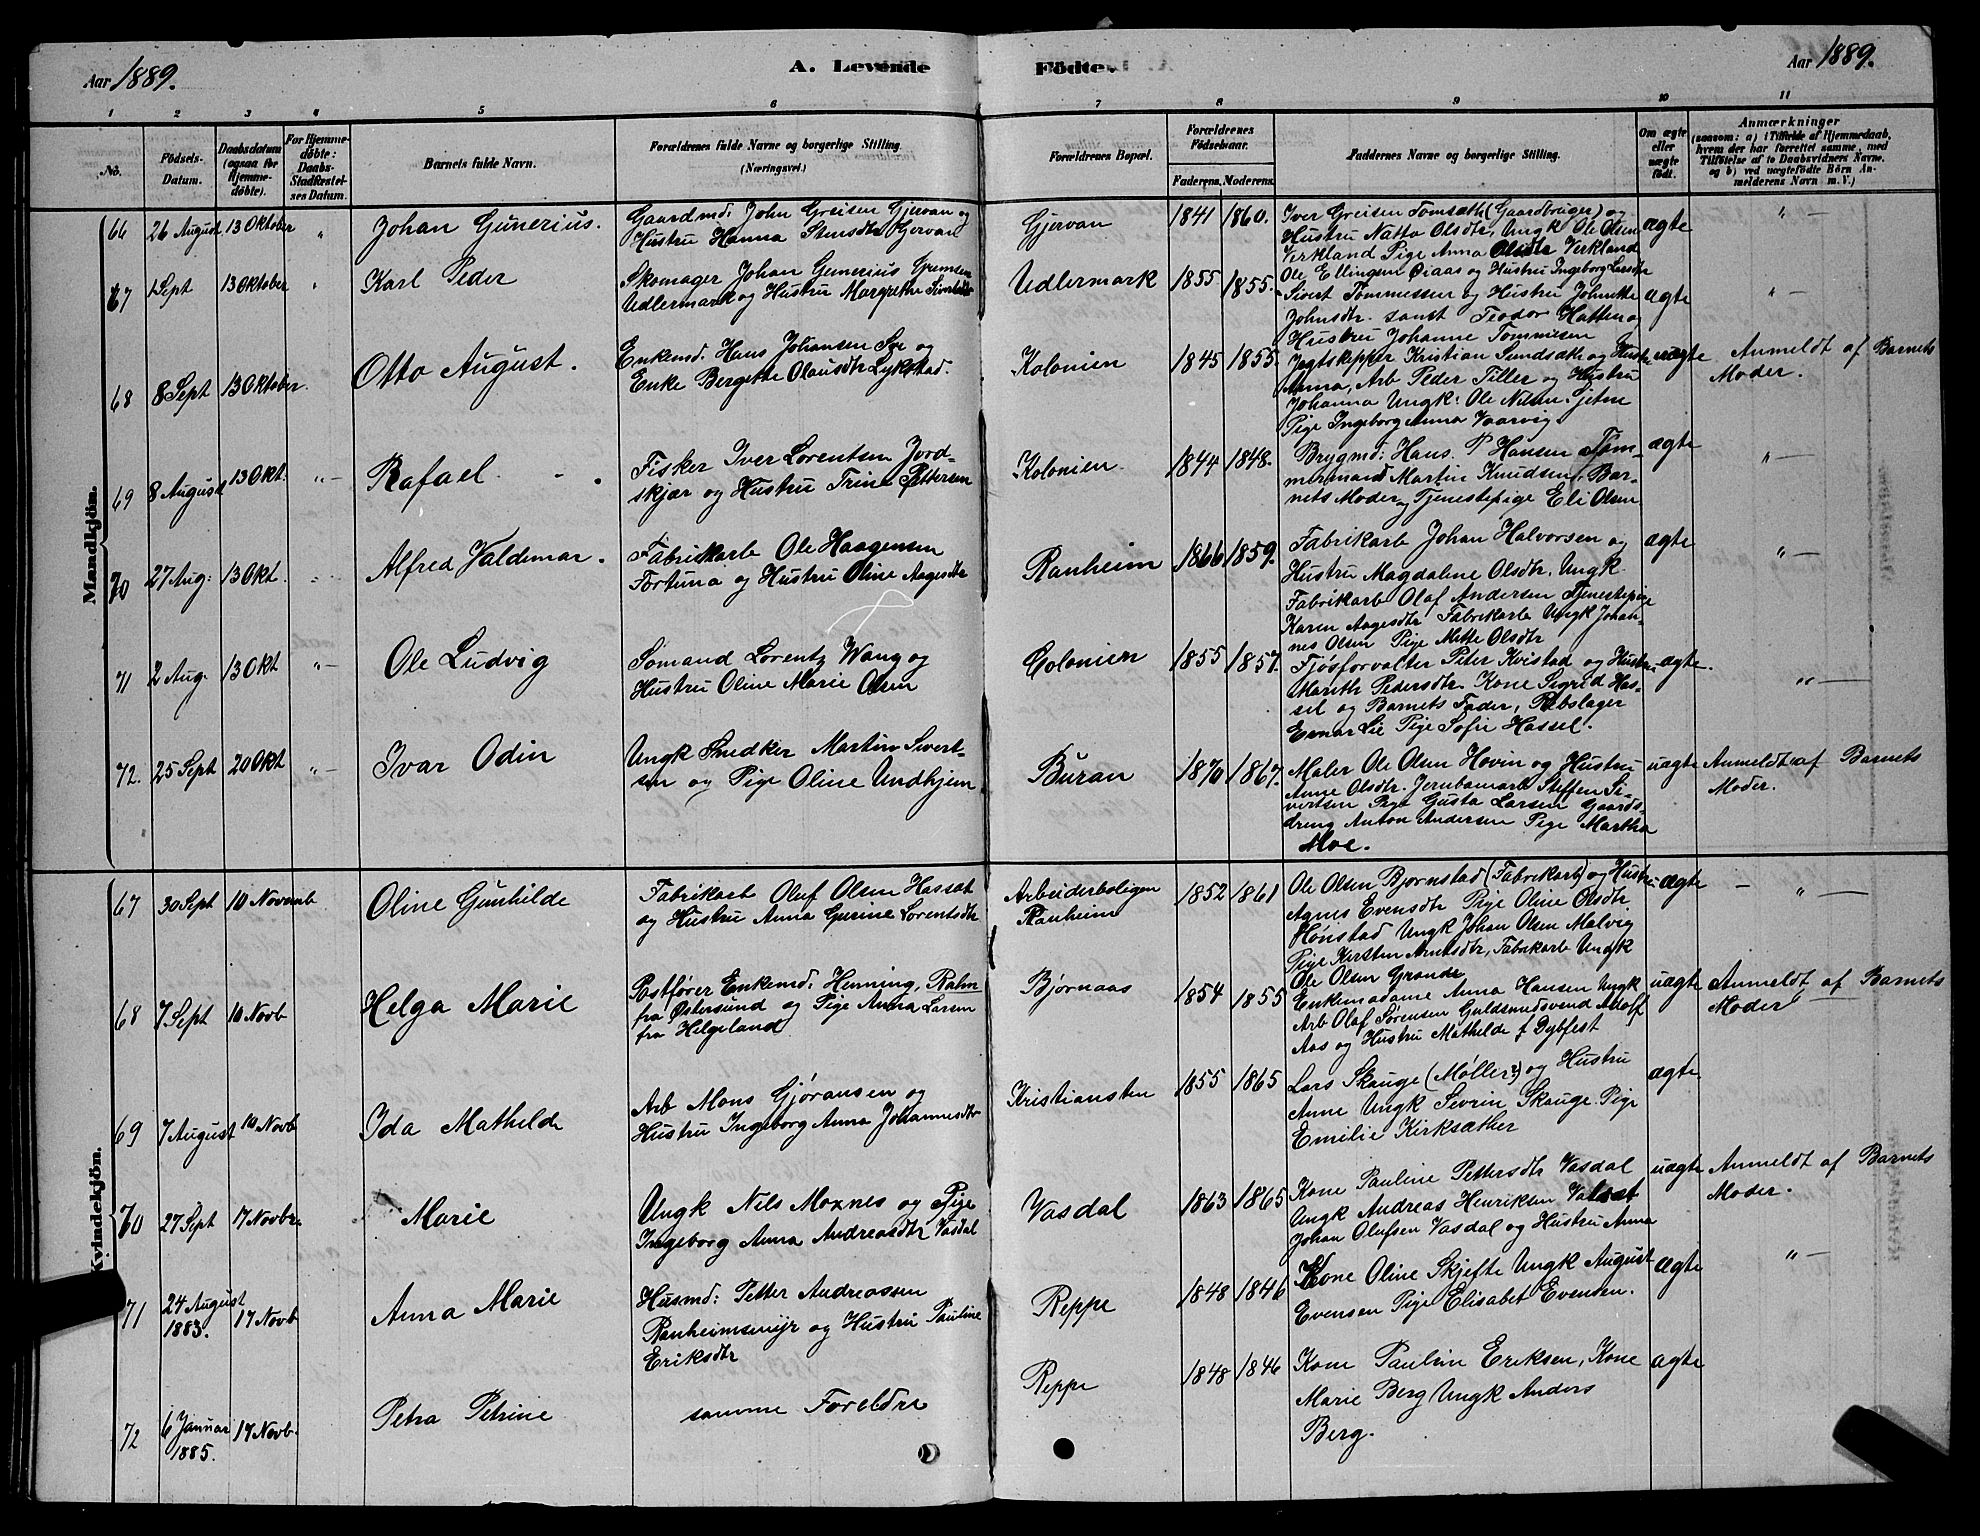 Aar 1889.
A. Levende Födte.
Aar 1889.
1 2 3 4 5 6 7 8 9 10 11
No.
Födsels-Datum.
Daabsdatum (ogsaa for Hjemmedöbte).
For Hjemmedöbte: Daabs-Stadfæstelses Datum.
Barnets fulde Navn.
Forældrenes fulde Navne og borgerlige Stilling.
(Næringsvei.)
Forældrenes Bopæl.
Forældrenes Födselsaar.
Faderens. Moderens.
Faddernes Navne og borgerlige Stilling.
Om ægte eller uægte födt.
Anmærkninger
(saasom: a) i Tilfælde af Hjemmedaab,
hvem der har forrettet samme, med
Tilföielse af to Daabsvidners Navne,
og b) ved uægtefödte Börn An-
melderens Navn m. V.)
Mandkjön.
66 26 August 13 Oktober " Johan Gunerius.
Gaardmd: John Greisen Gjervan og
Hustru Hanna Stensdtr Gjervan
Gjervan 1841 1860.
Iver Greisen Tomsæth (Gaardbruger) og
Hustru Natta Olsdtr, Ungk Ole Olsen
Virkland Pige Anna Olsdtr Virkland
ægte " —
67 1 Sept 13 Oktober " Karl Peder
Skomager Johan Gunerius Gremsen
Udlermark og Hustru Margrethe
Udlermark 1855 1855.
Ole Ellingsen Øiaas og Hustru Ingeborg Larsdtr
Sivert Tommessen og Hustru Johnette
Johnsdtr. samt Teodor Hatten og
Hustru Johanne Tommesen
ægte " —
68 8 Sept 13 Oktober. Otto August.
Enkemd. Hans Johansen Sæ og
Enke Bergette Olausdtr Lykstad.
Kolonien 1845 1855.
Jagtskipper Kristian Sundsæth og Hustr
Anna, Arb Peder Tiller og Hustru
Johanna Ungk: Ole Nilsen Gjetne
Pige Ingeborg Anna Vaarvig
uægte Anmeldt af Barnets
Moder.
69 8 August 13 Okt. " — Rafael
Fisker Iver Lorentsen Jord-
skjær og Hustru Trine Pettersen
Kolonien. 1844 1848.
Brygmd: Hans. P Hansen Tøm-
mermand Martin Knudsen, Bar-
nets Moder og Tjenestepige Eli Olsen
ægte " —
70 27 Aug. 13 Okt. Alfred Valdemar.
Fabrikarb Ole Haagensen
Fortuna og Hustru Oline Aagesdtr
Ranheim 1866 1859.
Fabrikarb Johan Halvorsen og
Hustru Magdaline Olsdtr. Ungk
Fabrikarb Olaf Andersen Tjenestepige
Karen Aagesdtr Fabrikarb Ungk Johan-
nes Olsen Pige Mette Olsdtr
ægte " —
71 2 Aug. 13 Okt " — Ole Ludvig
Sømand Lorentz Wang og
Hustru Oline Marie Olsen
Colonien 1855 1857.
Fjøsforvalter Peter Kvistad og Hustr
Marith Pedersdtr. Kone Sigrid Has-
sel og Barnets Fader, Rebslager
Einar Lie Pige Sofie Hassel.
ægte. " —
72. 25 Sept 20 Okt " — Ivar Odin
Ungk Snedker Martin Sivert-
sen og Pige Oline Undhjem
Buran 1870 1867.
Maler Ole Olsen Hovin og Hustru
Anne Olsdtr. Jernbanearb Steffen Si-
vertsen Pige Gusta Larsen Gaards-
dreng Anton Andersen Pige Martha
Moe.
uægte Anmeldt af Barnets
Moder.
Kvindekjön.
67 30 Sept 10 Novemb Oline Gunhilde
Fabrikarb Oluf Olsen Hassat
og Hustru Anna Gurine Lorentsdtr
Arbeiderboligen
Ranheim
1852 1861
Ole Olsen Bjornstad (Fabrikarb) og Hustru
Agnes Evensdtr Pige Oline Olsdtr
Hønstad Ungk Johan Olsen Malvig
Pige Kirsten Arntsdtr, Fabrikarb Ungk
Ole Olsen Grande
ægte — " —
68 7 Sept 10 Novb Helga Marie
Postfører Enkemd: Henning, Ralm
fra Østersund og Pige Anna Larsen
fra Helgeland
Bjørnaas 1854 1855
Enkemadame Anna Hansen Ungk
Arb Olaf Sørensen Guldsmedsvend Adolf
Aas og Hustru Mathilde f Dybfest
uægte Anmeldt af Barnets
Moder
69 7 August 10 Novb Ida Mathilde
Arb Mons Gjøransen og
Hustru Ingeborg Anna Johannesdtr
Kristiansten 1855 1865
Lars Skauge (Møller) og Hustru
Anne Ungk Sevrin Skauge. Pige
Emilie Kirksæther
ægte.
70 27 Sept 17 Novbr. Marie
Ungk Nils Moxnes og Pige
Ingeborg Anna Andreasdtr Vasdal
Vasdal 1863 1865
Kone Pauline Pettersdtr Vasdal
Ungk Andreas Henriksen
Johan Olufsen Vasdal og Hustru Anna
uægte Anmeldt af Barnets
Moder.
71 24 August 1883. 17 Novb Anna Marie
Husmd: Petter Andreassen
Ranheimseujr og Hustru Pauline
Eriksdtr
Reppe 1848 1846
Kone Oline Skjefte Ungk August
Evensen Pige Elisabet Evensen.
ægte " —
72 6 Januar 1885. 17 Novb. Petra Petrine
samme Foreldre
Reppe 1848 1846
Kone Paulin Eriksen, Kone
Marie Berg Ungk Anders
Berg.
ægte